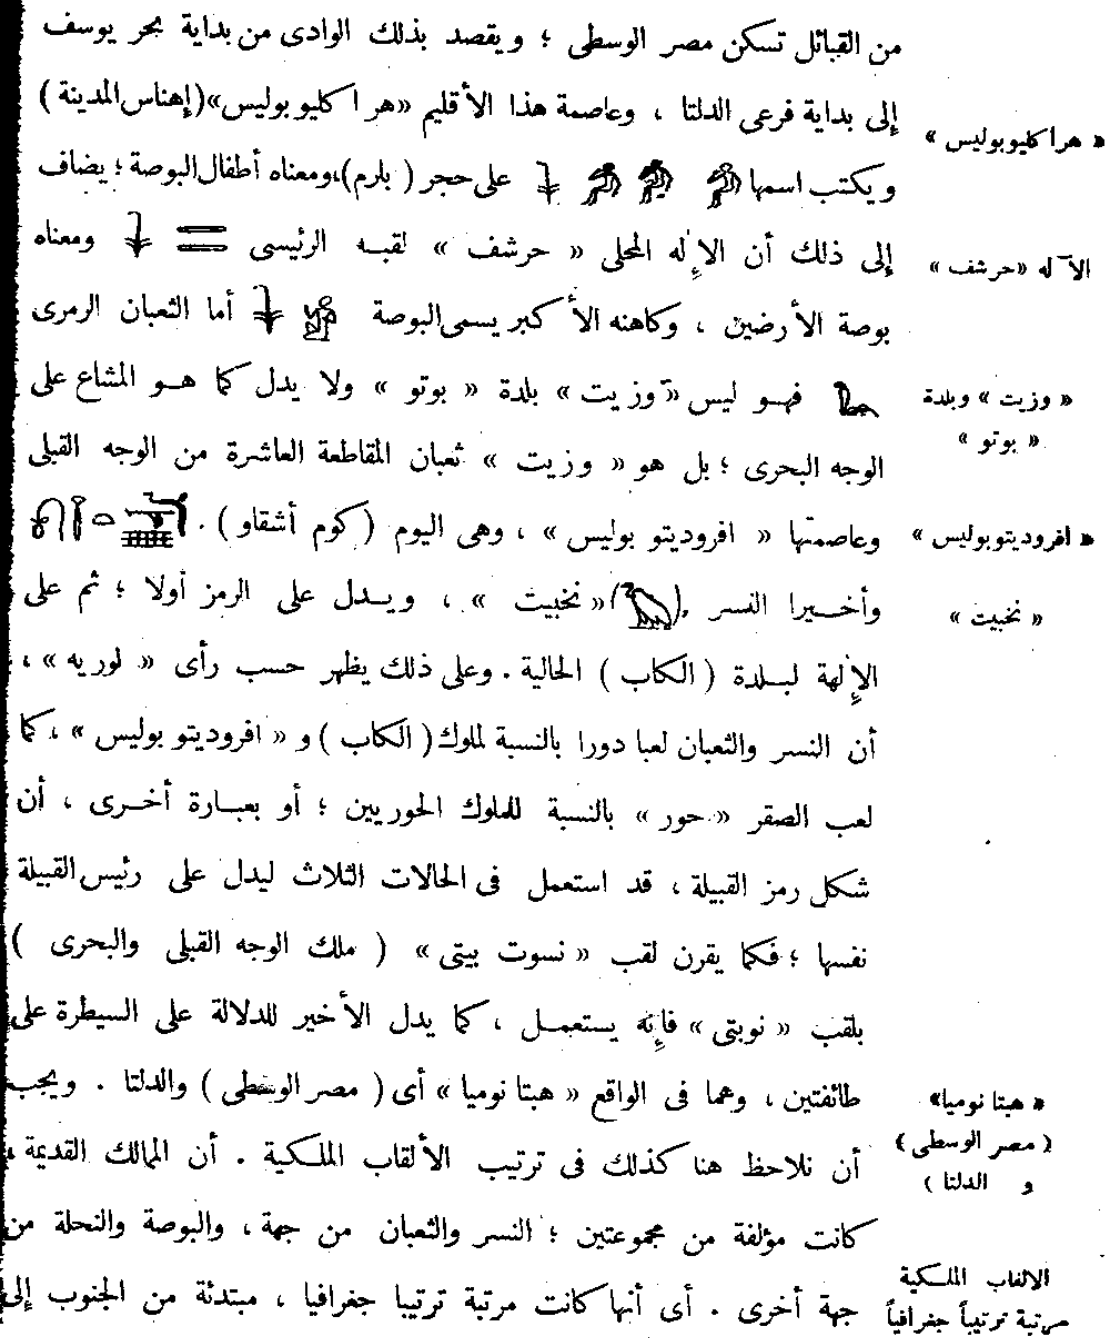 من القبائل تسكن مصر الوسطى ؛ ويقصد بذلك الوادى من بداية بحر يوسف
إلى بداية فرعى الدلتا ، وعاصمة هذا الأقليم «هرا كليوبوليس»(إهناس المدينة)
« هرا كليوبوليس »
ويكتب اسمها على حجر ( بلرم)،ومعناه أطفال البوصة ؛ يضاف
إلى ذلك أن الإِله المحلى « حرشف » لقبه الرئيسى ومعناه
الآله «حرشف »
بوصة الأرضين ، وكاهنه الأكبر يسمى البوصة أما الثعبان الرمزى
فهو ليس «وزيت» بلدة « بوتو » ولا يدل كما هو المشاع على
« وزيت » وبلدة
« بوتو »
الوجه البحرى ؛ بل هو « وزيت » ثعبان المقاطعة العاشرة من الوجه القبلى
وعاصمتها « افروديتو بوليس » ، وهى اليوم (كوم أشقاو ) .
« افروديتوبوليس »
وأخيرا النسر ( )« نخبيت » ، ويدل على الرمز أولا ؛ ثم على
« نخبيت »
الإِلهة لبلدة ( الكاب ) الحالية . وعلى ذلك يظهر حسب رأى « لوريه » ،
أن النسر والثعبان لعبا دورا بالنسبة لملوك ( الكاب ) و « افروديتو بوليس » ، كما
لعب الصقر « حور » بالنسبة للملوك الحوريين ؛ أو بعبارة أخرى ، أن
شكل رمز القبيلة ، قد استعمل فى الحالات الثلاث ليدل على رئيس القبيلة
نفسها ؛ فكما يقرن لقب « نسوت بيتى » ( ملك الوجه القبلى والبحرى )
بلقب « نوبتى » فإِنه يستعمل ، كما يدل الأخير للدلالة على السيطرة على
طائفتين ، وهما فى الواقع « هبتا نوميا » أى ( مصر الوسطى ) والدلتا . ويجب
« هبتا نوميا»
( مصر الوسطى )
و الدلتا )
أن نلاحظ هنا كذلك فى ترتيب الألقاب الملكية . أن الممالك القديمة
كانت مؤلفة من مجموعتين ؛ النسر والثعبان من جهة ، والبوصة والنحلة من
جهة أخرى . أى أنها كانت مرتبة ترتيبا جغرافيا ، مبتدئة من الجنوب إلى
الالقاب الملكية
مرتبة ترتيباً جغرافياً